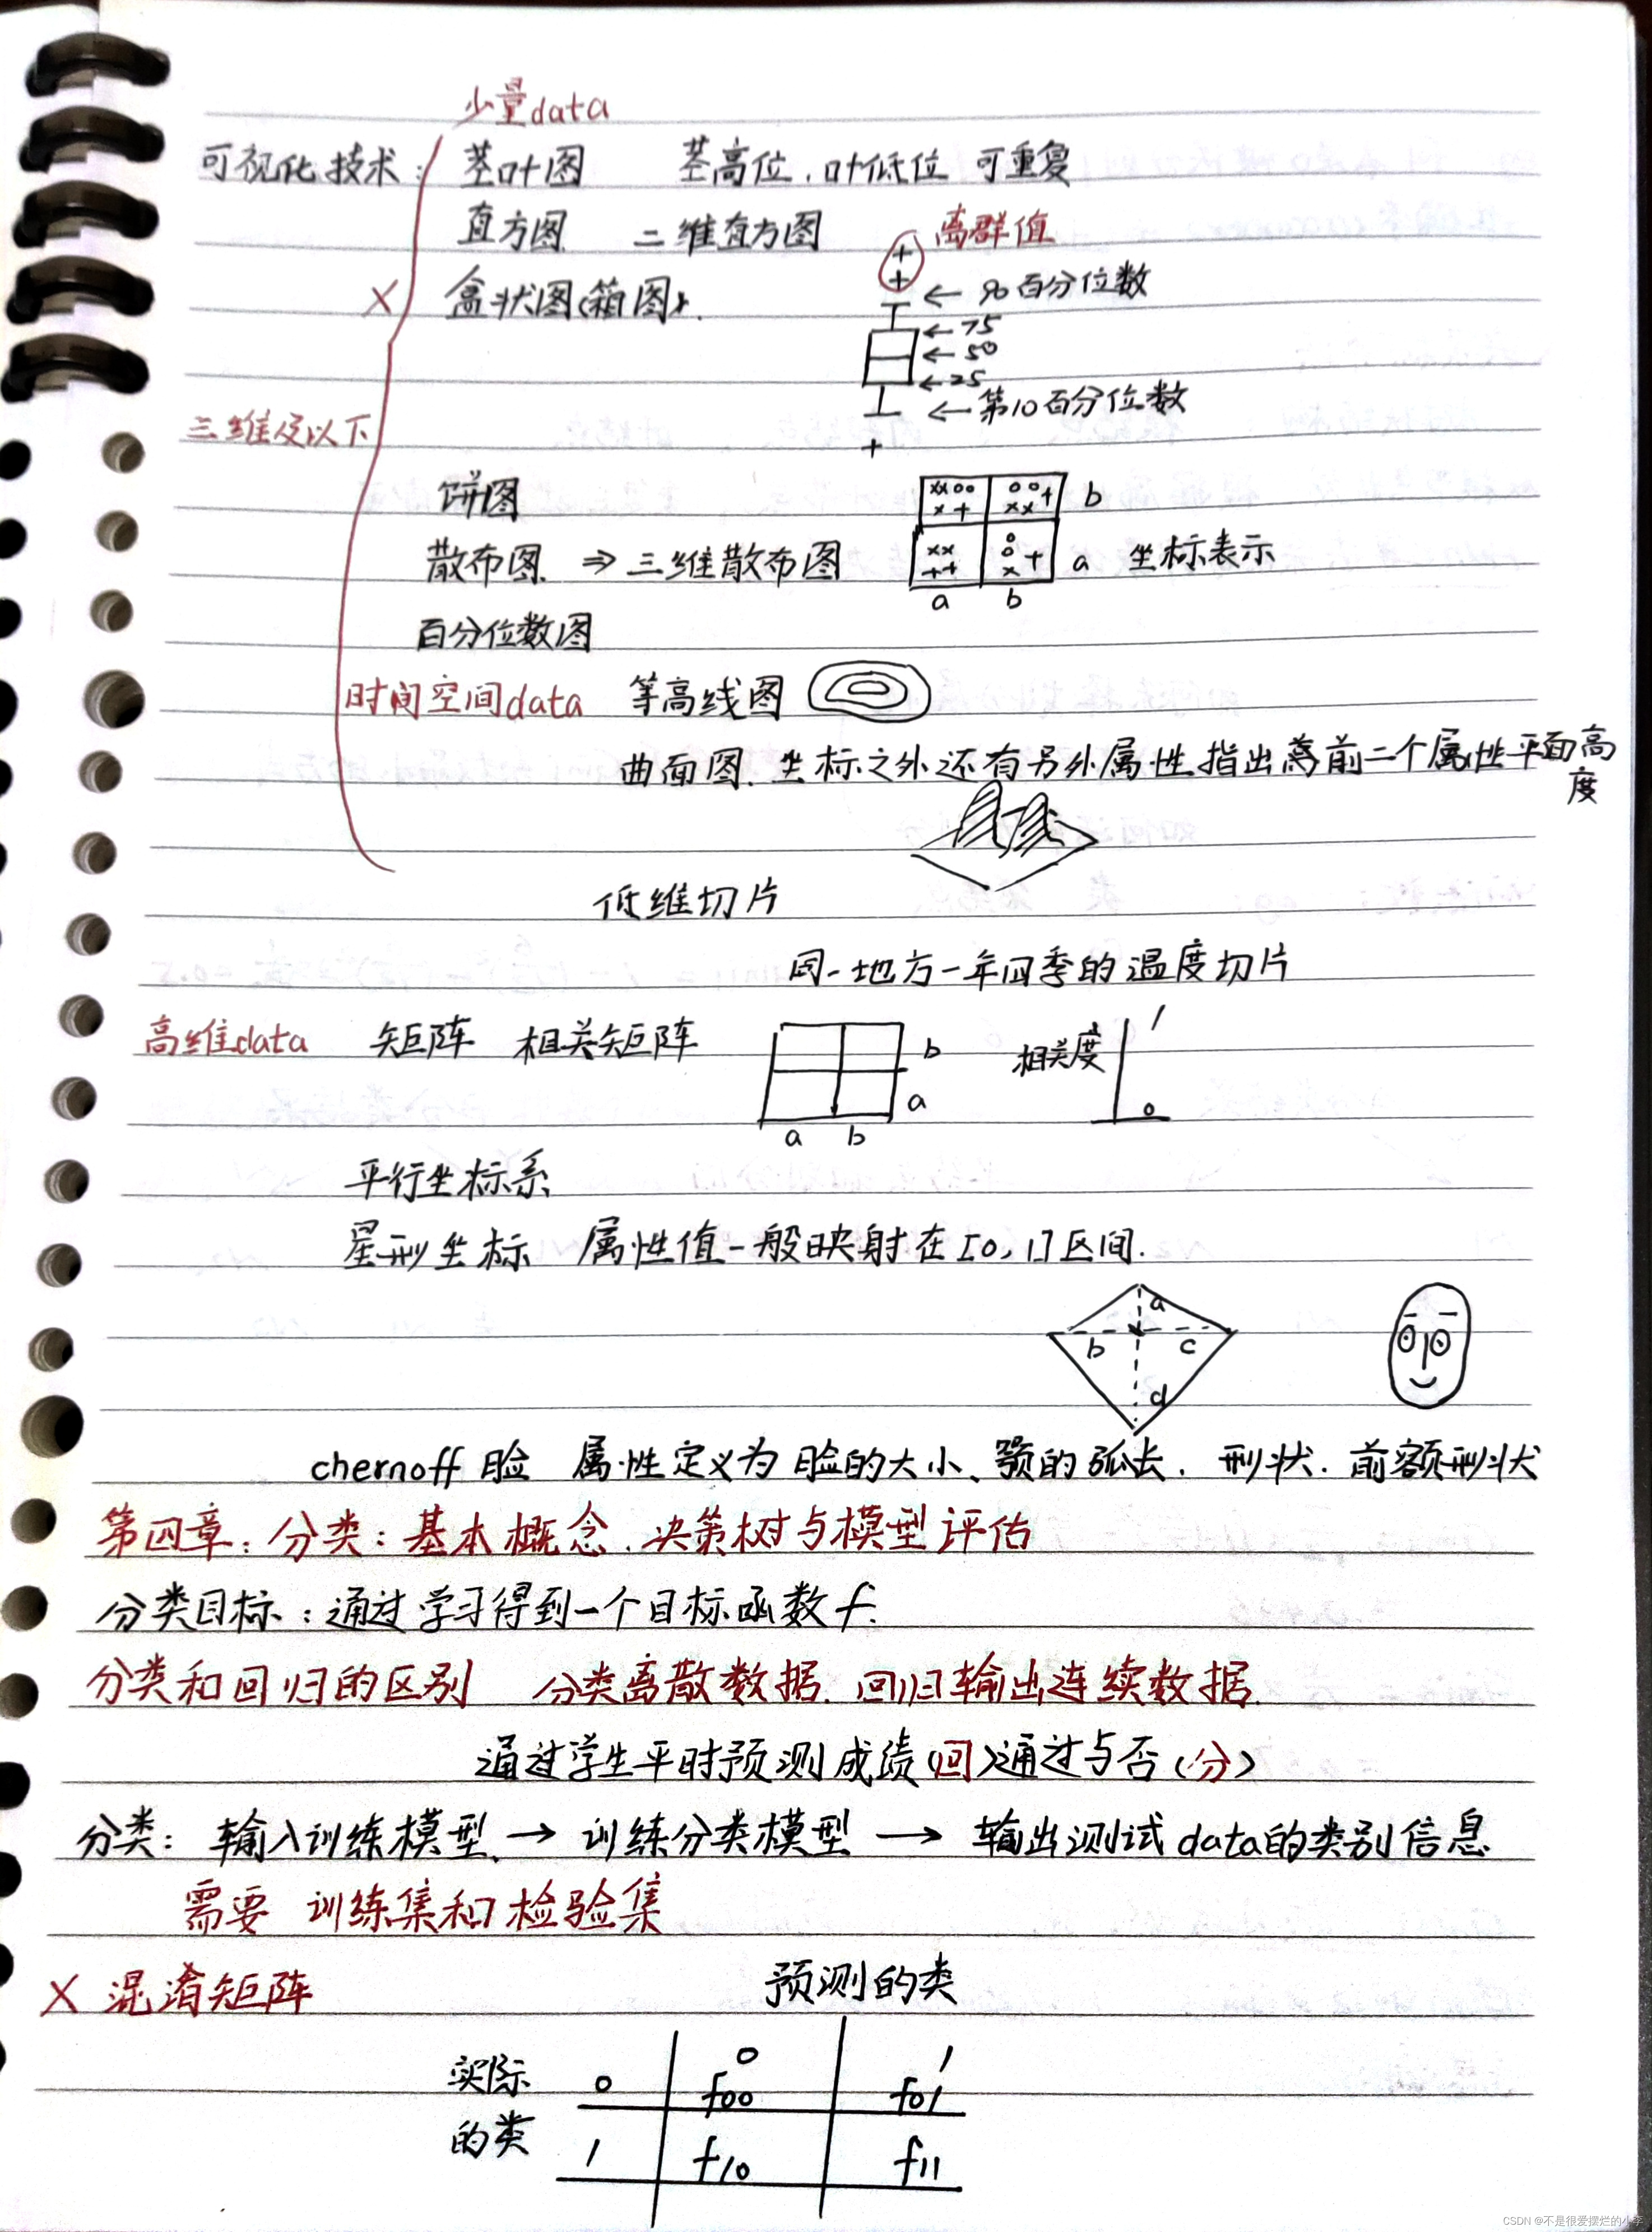 少量data
可视化技术： 茎叶图 茎高位，叶低位 可重复
直方图 二维直方图 离群值
+
+
X 盒状图(箱图). ← 90百分位数
← 75
← 50
← 25
← 第10百分位数
三维及以下
+
饼图 xxoo oo+ b
x+ xx
散布图 ⇒ 三维散布图 xx o o + a 坐标表示
++ x
a b
百分位数图
时间空间data 等高线图
曲面图. 坐标之外还有另外属性指出高前二个属性平面高度
低维切片
同一地方一年四季的温度切片
高维data 矩阵 相关矩阵 b 相关度 1
a 0
a b
平行坐标系
星形坐标 属性值一般映射在[0,1]区间.
a
b c
d
chernoff脸 属性定义为脸的大小、颚的弧长. 形状. 前额形状
第四章：分类：基本概念.决策树与模型评估
分类目标：通过学习得到一个目标函数f.
分类和回归的区别 分类离散数据.回归输出连续数据.
通过学生平时预测成绩(回)通过与否(分)
分类： 输入训练模型. → 训练分类模型 → 输出测试data的类别信息
需要 训练集和检验集
X 混淆矩阵 预测的类
0 1
实际 0 f00 f01
的类 1 f10 f11
CSDN @不是很爱摆烂的小李